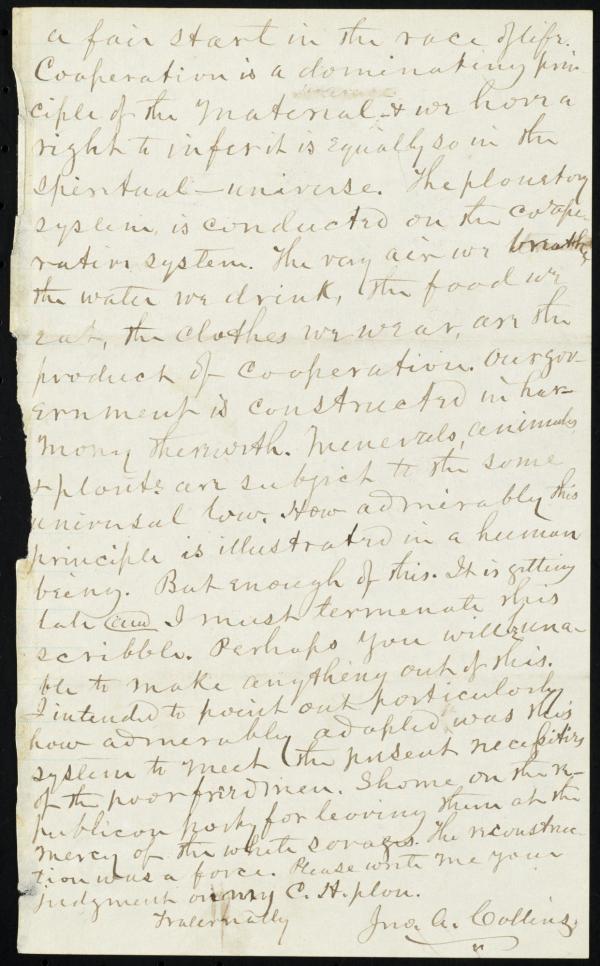 a fair start in the race of life.
Cooperation is a dominating prin-
ciple of the material & we have a
right to infer it is equally so in the
spiritual universe. The planetary
system, is conducted on the coope-
rative system. The very air we breathe,
the water we drink, the food we
eat, the clothes we wear, are the
product of cooperation. Our gov-
ernment is constructed in har-
mony therewith. Minerals, animals
& plants are subject to the same
universal law. How admirably this
principle is illustrated in a human
being. But enough of this. It is getting
late and I must terminate this
scribble. Perhaps you will be una-
ble to make anything out of this.
I intended to point out particularly
how admirably adapted was this
system to meet the present necessities
of the poor freedmen. Shame on the re-
publican party for leaving them at the
mercy of the white savages. The reconstruc-
tion was a farce. Please write me your
judgment on my C. H. plan.
Fraternally
Jno. A. Collins